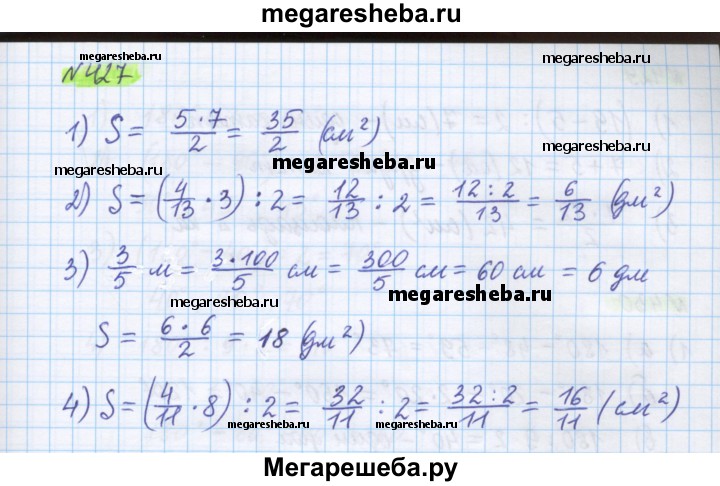 megaresheba.ru
№427
megaresheba.ru megaresheba.ru
1) S = 5·7/2 = 35/2 (см²)
megaresheba.ru megaresheba.ru
2) S = (4/13 · 3) : 2 = 12/13 : 2 = 12:2/13 = 6/13 (дм²)
3) 3/5 м = 3·100/5 см = 300/5 см = 60 см = 6 дм
megaresheba.ru megaresheba.ru
S = 6·6/2 = 18 (дм²)
4) S = (4/11 · 8) : 2 = 32/11 : 2 = 32:2/11 = 16/11 (см²)
megaresheba.ru megaresheba.ru
Мегарешеба.ру